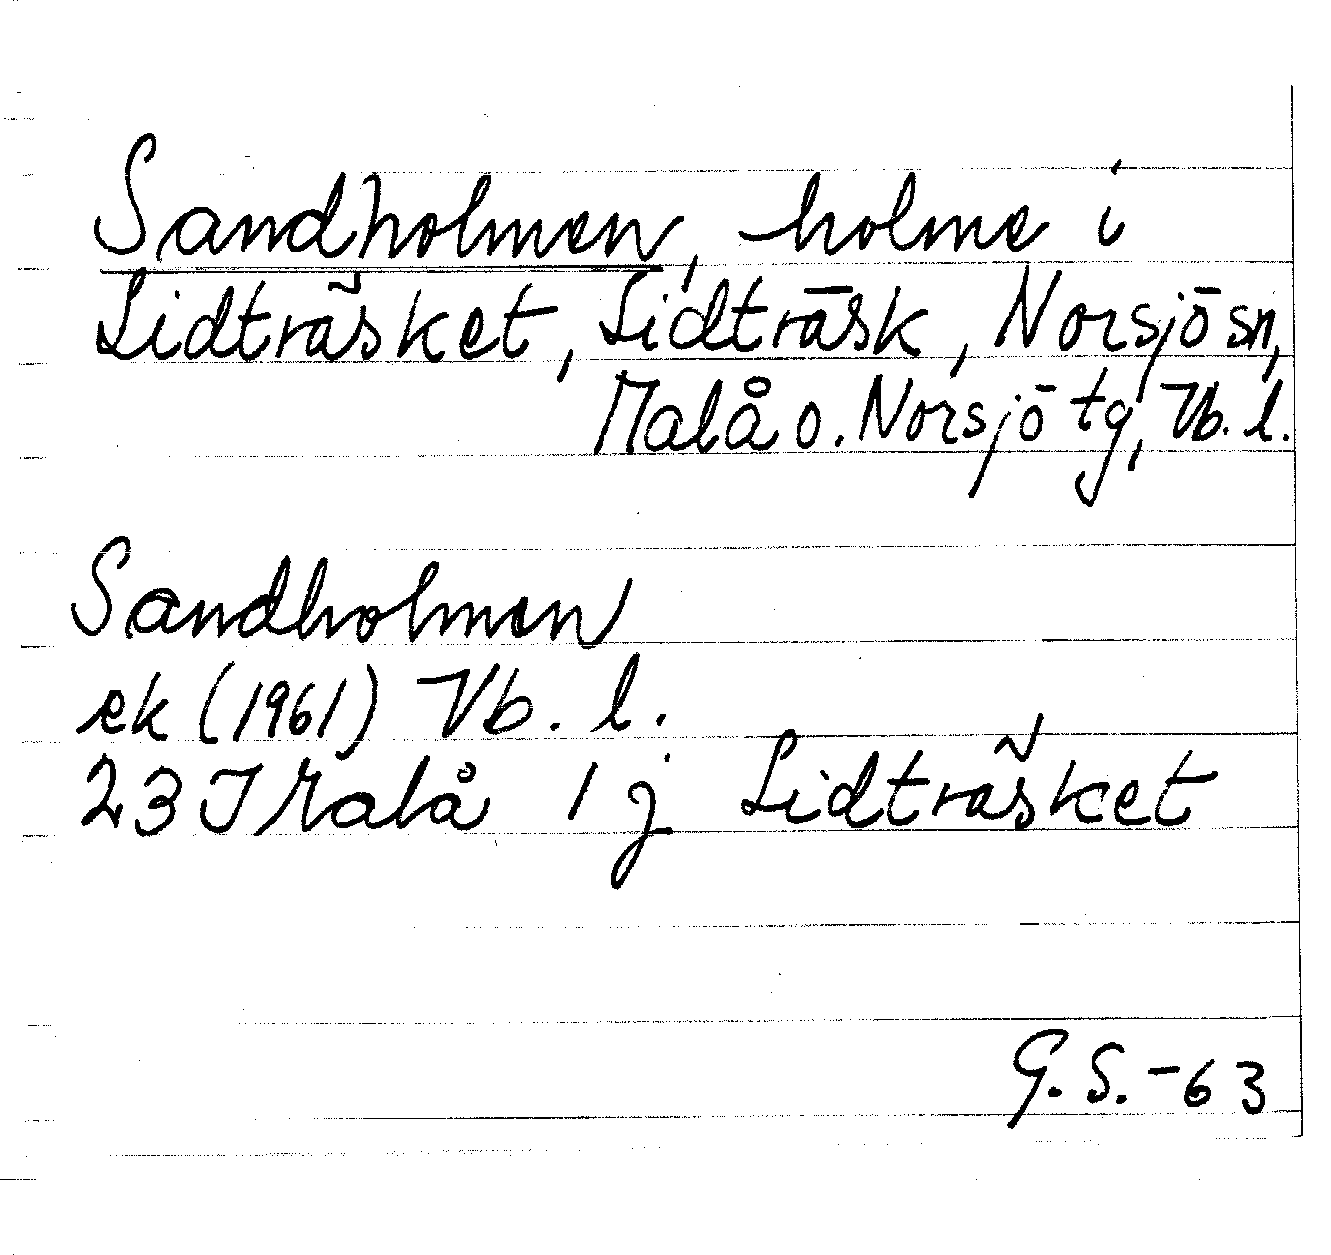 Sandholmen, holme i
Lidträsket, Lidträsk, Norsjö sn,
Malå o. Norsjö tg, Vb. l.
Sandholmen
ek (1961) Vb. l.
23 I Malå 1 j Lidträsket
G. S. -63